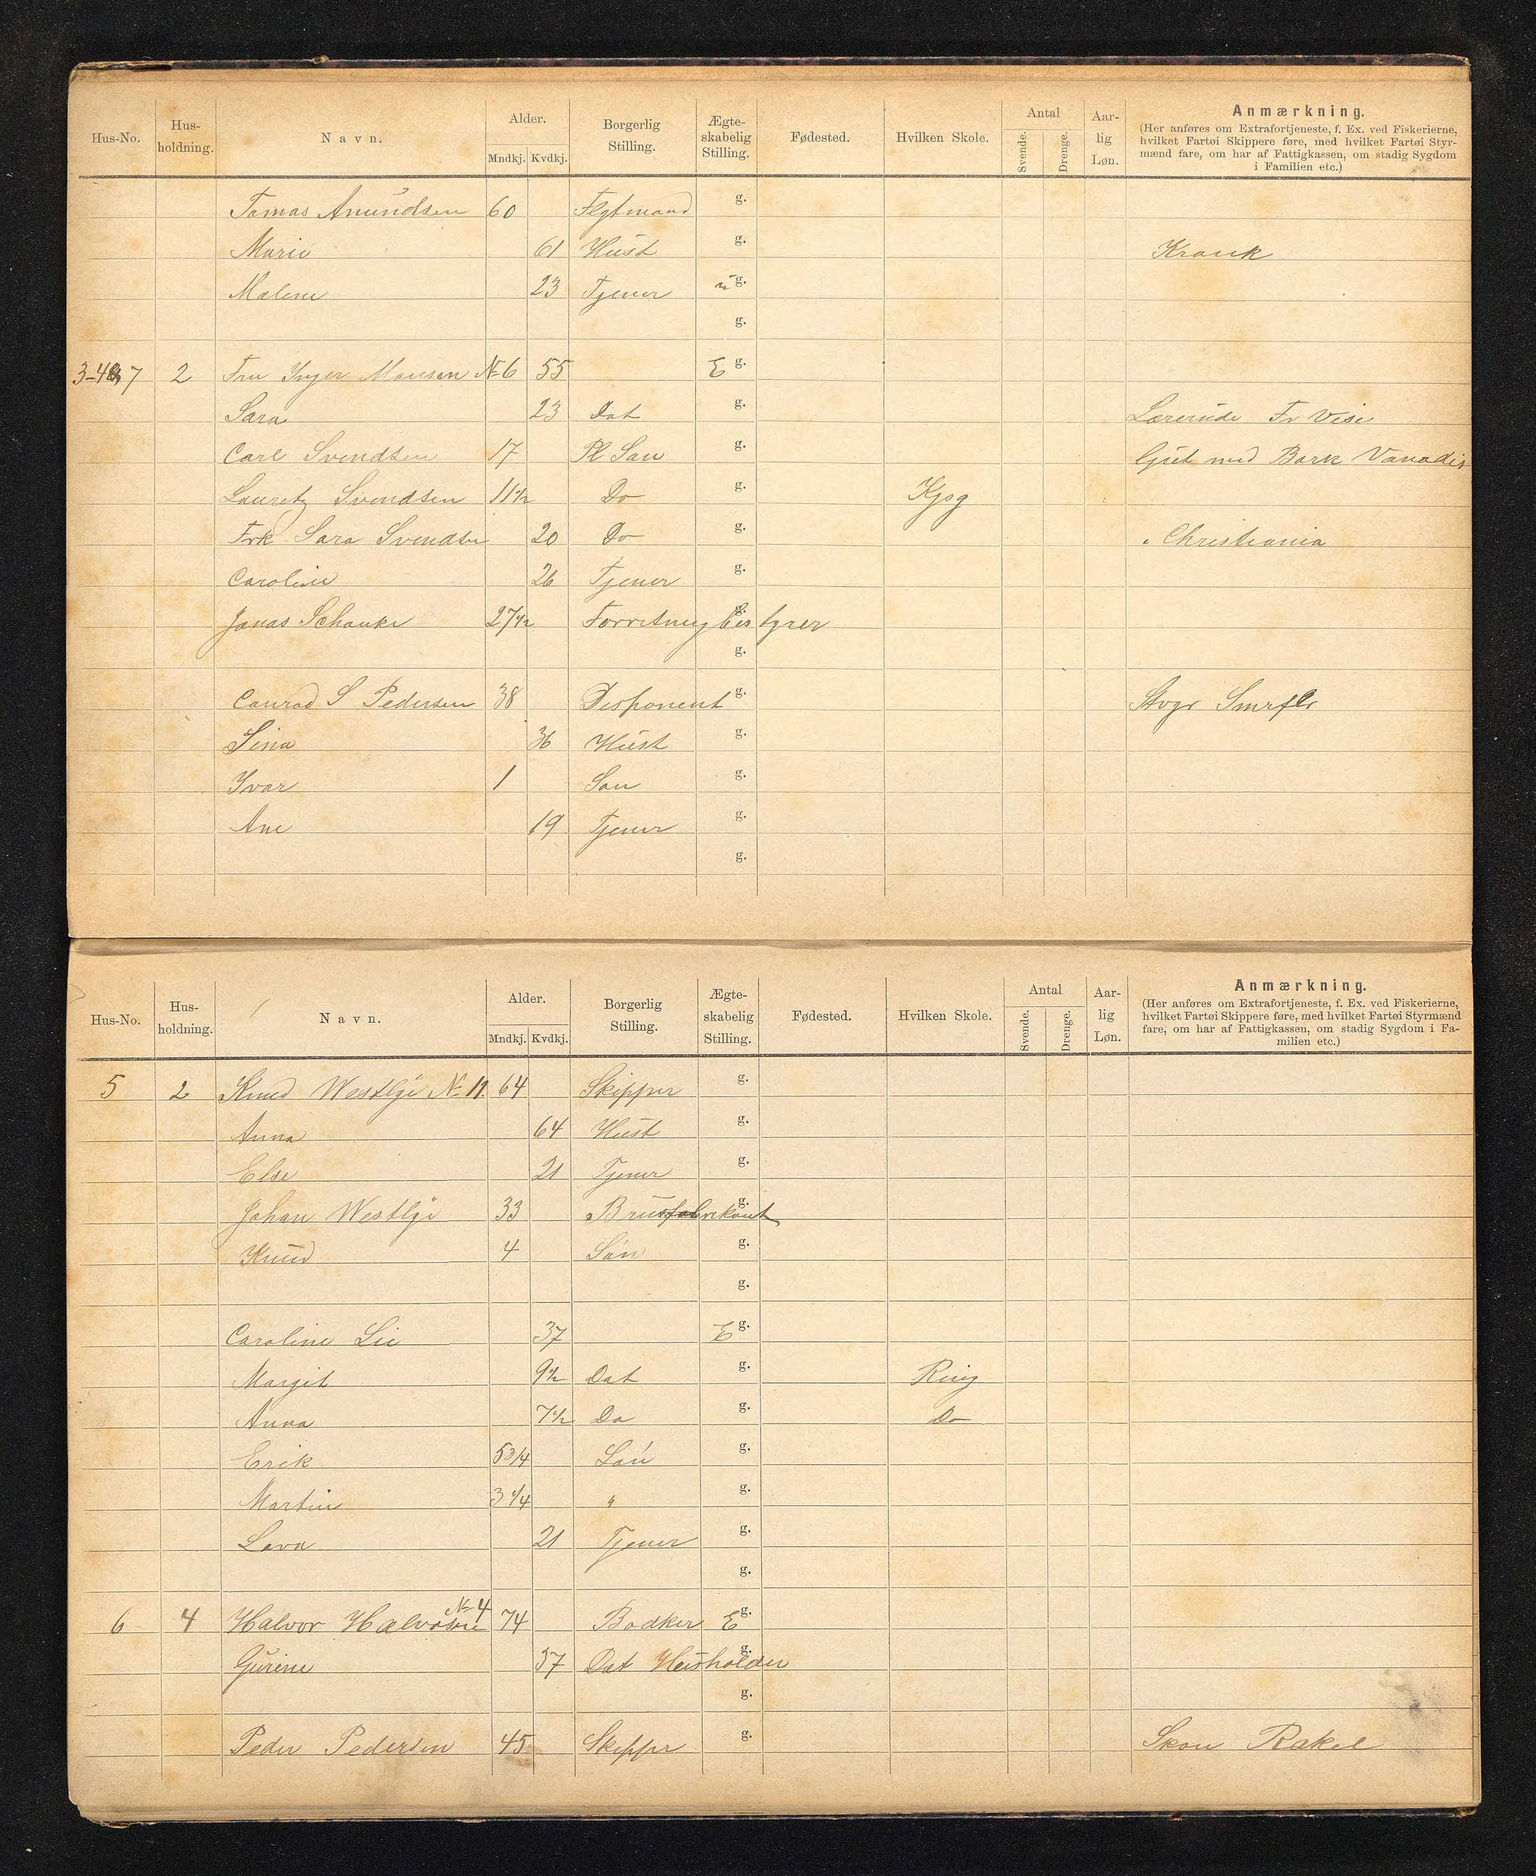 Hus-No. Hus-holdning. Navn. Alder. Mndkj. Kvdkj. Borgerlig Stilling. Ægte-skabelig Stilling. Fødested. Hvilken Skole. Antal Svende. Drenge. Aar-lig Løn. Anmærkning.
(Her anføres om Extrafortjeneste, f. Ex. ved Fiskerierne,
hvilket Fartøi Skippere føre, med hvilket Fartøi Styr-
mænd fare, om har af Fattigkassen, om stadig Sygdom
i Familien etc.)
Tomas Anundsen 60 Flytmand g.
Marie 61 Hust g. Krank
Malene 23 Tjener u g.
g.
3-4 7 2 Fru Inger Monsen No 6 55 E g.
Sara 23 Dat g. Lærerinde Fr Vise
Carl Svendsen 17 Pl Søn g. Gut med Bark Vanadis
Lauretz Svendsen 11½ Do g. Kjsg
Frk Sara Svendsen 20 Do g. Christiania
Caroline 26 Tjener g.
Jonas Schanke 27½ Forretningbestyrer g.
g.
Conrad S Pedersen 38 Disponent g.
Sina 36 Hust g.
Yvar 1 Søn g.
Ane 19 Tjener g.
g.
Hus-No. Hus-holdning. Navn. Alder. Mndkj. Kvdkj. Borgerlig Stilling. Ægte-skabelig Stilling. Fødested. Hvilken Skole. Antal Svende. Drenge. Aar-lig Løn. Anmærkning.
(Her anføres om Extrafortjeneste, f. Ex. ved Fiskerierne,
hvilket Fartøi Skippere føre, med hvilket Fartøi Styrmænd
fare, om har af Fattigkassen, om stadig Sygdom i Fa-
milien etc.)
5 2 Knud Westlye No 11. 64 Skipper g.
Anna 64 Hust g.
Else 21 Tjener g.
Johan Westlye 33 Brusfabrikant g.
Knud 4 Søn g.
g.
Caroline Lie 37 E g.
Margit 9½ Dat g. Ring
Anna 7½ Do g. Do
Erik 5 3/4 Søn g.
Martin 3 1/4 " g.
Lava 21 Tjener g.
g.
6 4 Halvor Halvorsen No 4 74 Bødker E g.
Gurine 37 Dat Husholder g.
g.
Peder Pedersen 45 Skipper g. Skon Rakel